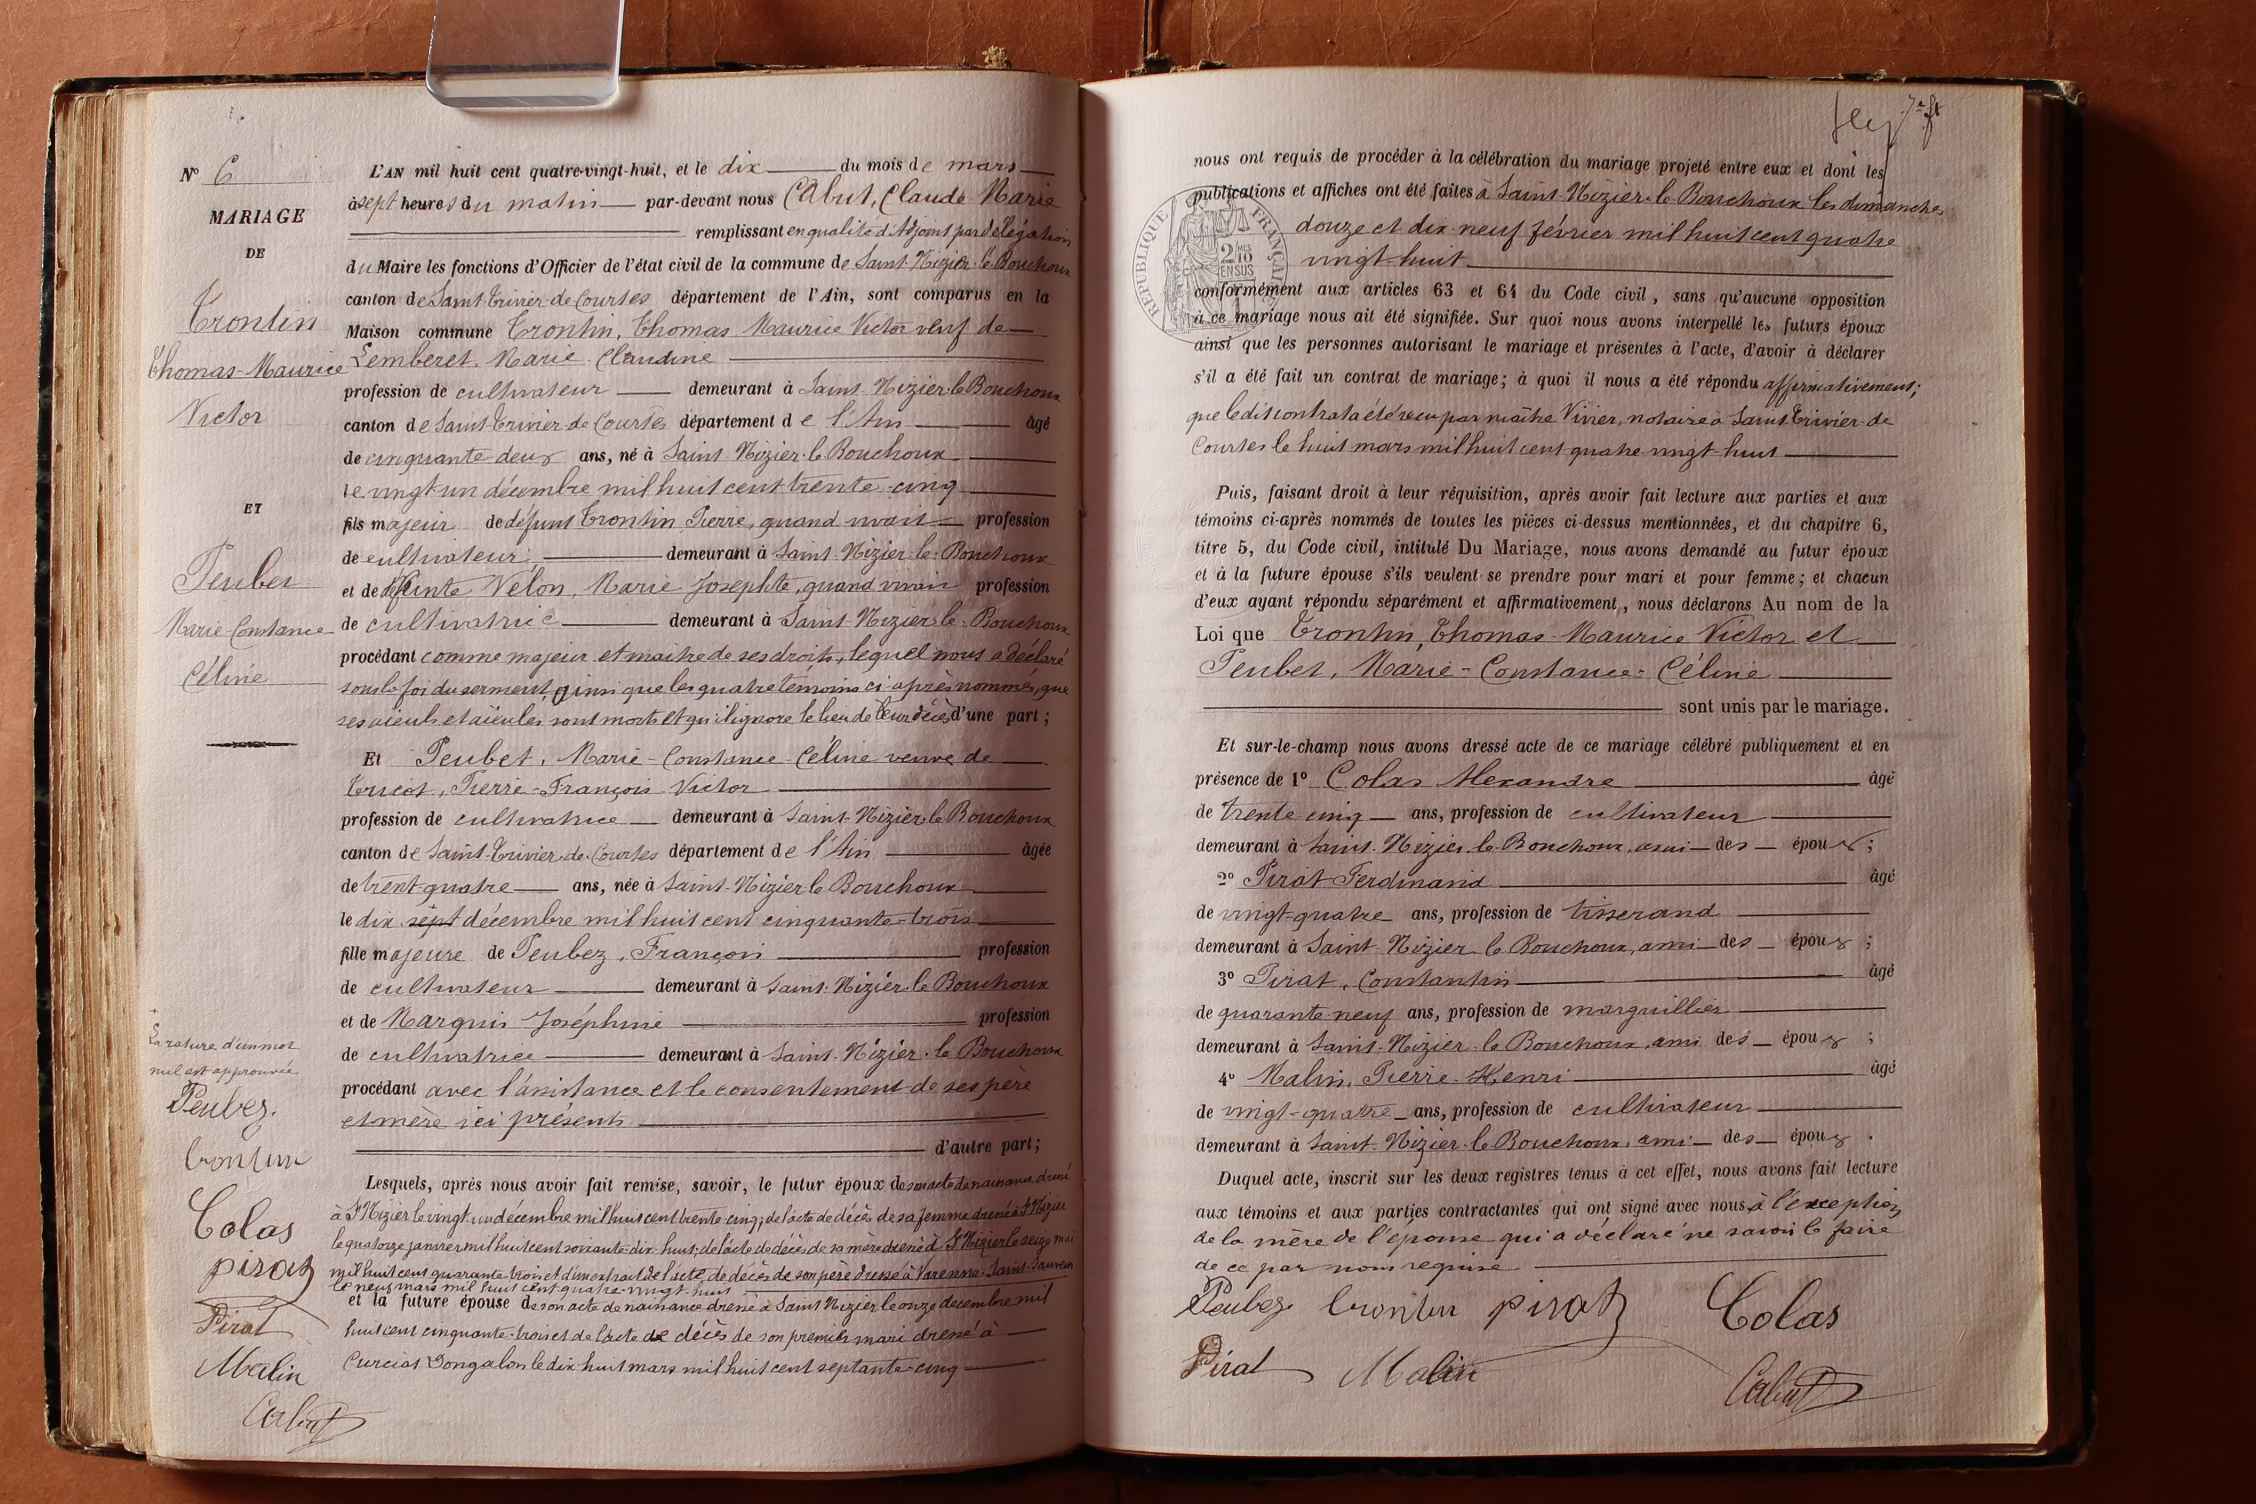 N° 6
MARIAGE
DE
Trontin
Thomas-Maurice
Victor
ET
Peubet
Marie-Constance
Céline
La rature d'un mot
nul est approuvée
Peubez.
Trontin
Colas
pirat
Pirat
Malin
Cabut
L'AN mil huit cent quatre-vingt-huit, et le dix du mois de mars
à sept heures du matin par-devant nous Cabut, Claude Marie
remplissant en qualité d'Adjoint par délégation
du Maire les fonctions d'Officier de l'état civil de la commune de Saint-Nizier-le-Bouchoux
canton de Saint-Trivier-de-Courtes département de l'Ain, sont comparus en la
Maison commune Trontin, Thomas Maurice Victor veuf de
Lemberet, Marie Claudine
profession de cultivateur demeurant à Saint-Nizier-le-Bouchoux
canton de Saint-Trivier-de-Courtes département de l'Ain âgé
de cinquante deux ans, né à Saint-Nizier-le-Bouchoux
le vingt-un décembre mil huit cent trente-cinq
fils majeur de défunt Trontin Pierre, quand vivait profession
de cultivateur demeurant à Saint-Nizier-le-Bouchoux
et de défunte Vélon, Marie Josephte, quand vivait profession
de cultivatrice demeurant à Saint-Nizier-le-Bouchoux
procédant comme majeur et maître de ses droits, lequel nous a déclaré
sous la foi du serment, ainsi que les quatre témoins ci-après nommés, que
ses aïeuls et aïeules sont morts et qu'il ignore le lieu de leur décès d'une part ;
Et Peubet, Marie-Constance-Céline veuve de
Tricot, Pierre-François Victor
profession de cultivatrice demeurant à Saint-Nizier-le-Bouchoux
canton de Saint-Trivier-de-Courtes département de l'Ain âgée
de trent-quatre ans, née à Saint-Nizier-le-Bouchoux
le dix sept décembre mil huit cent cinquante-trois
fille majeure de Peubez, François profession
de cultivateur demeurant à Saint-Nizier-le-Bouchoux
et de Marguis Joséphine profession
de cultivatrice demeurant à Saint-Nizier-le-Bouchoux
procédant avec l'assistance et le consentement de ses père
et mère ici présents
d'autre part ;
Lesquels, après nous avoir fait remise, savoir, le futur époux de son acte de naissance dressé
à St Nizier le vingt-un décembre mil huit cent trente cinq, de l'acte de décès de sa femme dressé à St Nizier
le quatorze janvier mil huit cent soixante-dix-huit, de l'acte de décès de sa mère dressé à St Nizier le seize mai
mil huit cent quarante trois et d'un extrait de l'acte de décès de son père dressé à Varennes-Saint-Sauveur
le neuf mars mil huit cent quatre-vingt-huit
et la future épouse de son acte de naissance dressé à Saint Nizier le onze décembre mil
huit cent cinquante-trois et de l'acte de décès de son premier mari dressé à
Curciat Dongalon le dix-huit mars mil huit cent septante-cinq
nous ont requis de procéder à la célébration du mariage projeté entre eux et dont les
publications et affiches ont été faites à Saint-Nizier-le-Bouchoux les dimanches
douze et dix-neuf février mil huit cent quatre
vingt-huit
conformément aux articles 63 et 64 du Code civil, sans qu'aucune opposition
à ce mariage nous ait été signifiée. Sur quoi nous avons interpellé les futurs époux
ainsi que les personnes autorisant le mariage et présentes à l'acte, d'avoir à déclarer
s'il a été fait un contrat de mariage ; à quoi il nous a été répondu affirmativement ;
que le dit contrat a été reçu par maître Vivier, notaire à Saint-Trivier-de
Courtes le huit mars mil huit cent quatre vingt-huit
REPUBLIQUE FRANÇAISE
2/10 EN SUS
Puis, faisant droit à leur réquisition, après avoir fait lecture aux parties et aux
témoins ci-après nommés de toutes les pièces ci-dessus mentionnées, et du chapitre 6,
titre 5, du Code civil, intitulé Du Mariage, nous avons demandé au futur époux
et à la future épouse s'ils veulent se prendre pour mari et pour femme ; et chacun
d'eux ayant répondu séparément et affirmativement, nous déclarons Au nom de la
Loi que Trontin, Thomas-Maurice Victor et
Peubet, Marie-Constance-Céline
sont unis par le mariage.
Et sur-le-champ nous avons dressé acte de ce mariage célébré publiquement et en
présence de 1° Colas Alexandre âgé
de trente cinq ans, profession de cultivateur
demeurant à Saint-Nizier-le-Bouchoux, ami des époux ;
2° Pirat Ferdinand âgé
de vingt-quatre ans, profession de tisserand
demeurant à Saint-Nizier-le-Bouchoux, ami des époux ;
3° Pirat, Constantin âgé
de quarante-neuf ans, profession de marguillier
demeurant à Saint-Nizier-le-Bouchoux, ami des époux ;
4° Malin, Pierre-Henri âgé
de vingt-quatre ans, profession de cultivateur
demeurant à Saint-Nizier-le-Bouchoux, ami des époux.
Duquel acte, inscrit sur les deux registres tenus à cet effet, nous avons fait lecture
aux témoins et aux parties contractantes qui ont signé avec nous, à l'exception
de la mère de l'épouse qui a déclaré ne savoir le faire
de ce par nous requise
Peubez Trontin pirat Colas
Pirat Malin Cabut